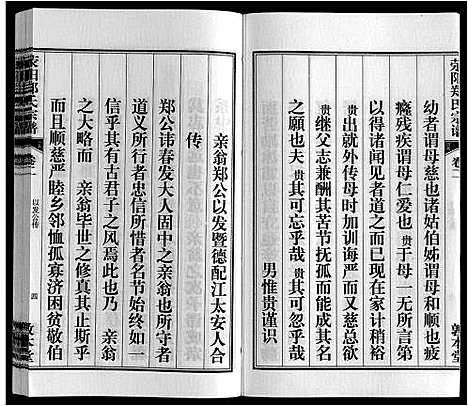 荥阳郑氏宗谱
卷二
敦本堂
幼者谓母慈也诸姑伯姊谓母和顺也疲
癃残疾谓母仁爱也 贵于母一无所言第
以得诸闻见者道之而已现在家计稍裕
贵出就外传母时加训诲严而又慈总愿
贵继父志兼酬其苦节抚孤而能成其名
贵不可忘乎哉 贵何可忘乎哉 贵慎毋忘
之愿也夫
男惟贵谨识
亲翁郑公以发暨德配江太安人合
传
郑公讳春发大人固中之亲翁也所守者
道义所行者忠信所惜者名节始终如一
信乎其有古君子之风焉此也乃 亲翁
之大略而 亲翁毕世之修真其止斯乎
而且顺慈严睦乡邻恤孤寡济困贫敬伯
荥阳郑氏宗谱
卷二
以发公传
四
敦本堂